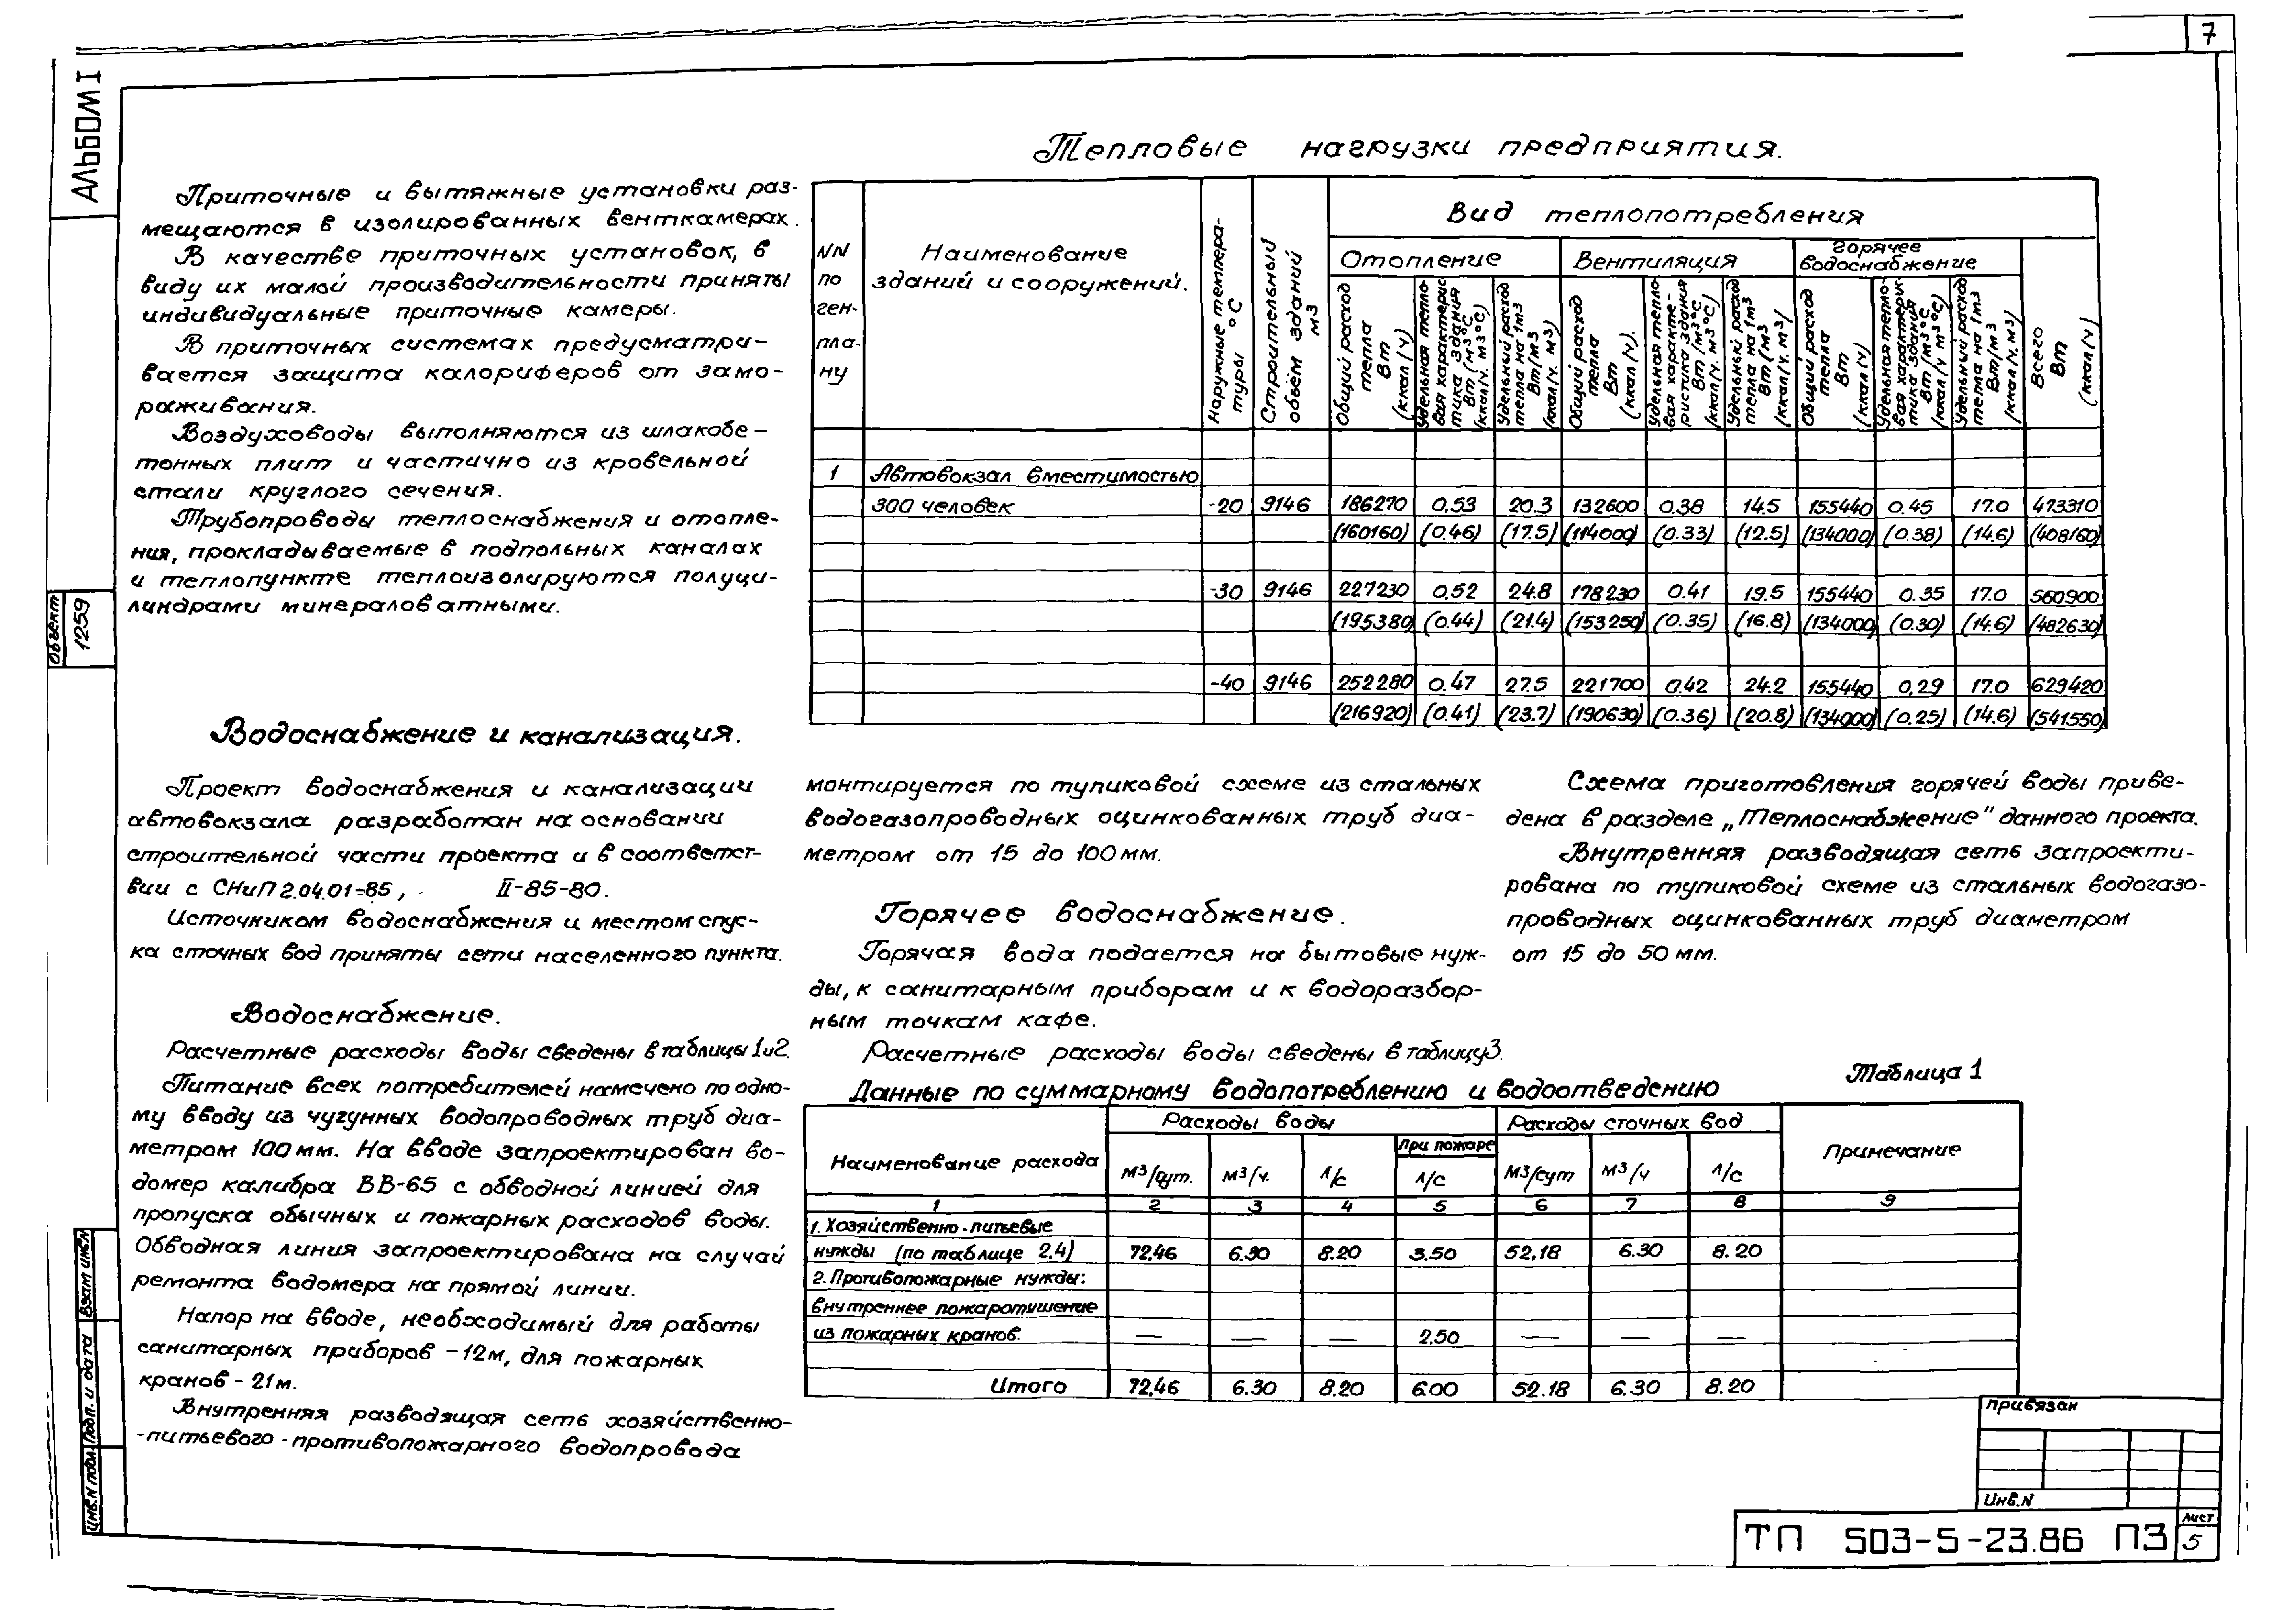 7
Альбом I
Приточные и вытяжные установки раз-
мещаются в изолированных венткамерах.
В качестве приточных установок, в
виду их малой производительности приняты
индивидуальные приточные камеры.
В приточных системах предусматри-
вается защита калориферов от замо-
раживания.
Воздуховоды выполняются из шлакобе-
тонных плит и частично из кровельной
стали круглого сечения.
Трубопроводы теплоснабжения и отопле-
ния, прокладываемые в подпольных каналах
и теплопункте теплоизолируются полуци-
линдрами минераловатными.
Объект
1259
Тепловые нагрузки предприятия.
NN
по
ген-
пла-
ну
Наименование
зданий и сооружений.
Наружные темпера-
туры °С
Строительный
объём зданий
м3
Вид теплопотребления
Отопление
Вентиляция
Горячее
водоснабжение
Общий расход
тепла
Вт
(ккал/ч)
Удельная тепло-
вая характерис
тика здания
Вт (м³°С
(ккал/ч. м³°С)
Удельный расход
тепла на 1м3
Вт/м3
(ккал/ч. м³)
Общий расход
тепла
Вт
(ккал/ч).
Удельная тепло-
вая характе-
ристика здания
Вт/(м³°С)
(ккал/ч м³°С)
Удельны расход
тепла на 1м3
Вт/м3
(ккал/ч. м³)
Общий расход
тепла
Вт
(ккал/ч)
Удельная тепло-
вая характерис
тика здания
Вт/(м³°С)
(ккал/ч м³°С)
Удельный расход
тепла на 1м3
Вт/м3
(ккал/ч. м³)
Всего
Вт
(ккал/ч)
1 Автовокзал вместимостью
300 человек -20 9146 186270 0,53 20.3 132600 0.38 14.5 155440 0.45 17.0 473310
(160160) (0.46) (17.5) (114000) (0.33) (12.5) (134000) (0.38) (14.6) (408160)
-30 9146 227230 0.52 24.8 178230 0.41 19.5 155440 0.35 17.0 560900
(195380) (0.44) (21.4) (153250) (0.35) (16.8) (134000) (0.30) (14.6) (482630)
-40 9146 252280 0.47 27.5 221700 0.42 24.2 155440 0,29 17.0 629420
(216920) (0.41) (23.7) (190630) (0.36) (20.8) (134000) (0.25) (14.6) (541550)
Водоснабжение и канализация.
Проект водоснабжения и канализации
автовокзала разработан на основании
строительной части проекта и в соответст-
вии с СНиП 2.04.01-85, II-85-80.
Источником водоснабжения и местом спус-
ка сточных вод приняты сети населенного пункта.
Водоснабжение.
Расчетные расходы воды сведены в таблицы 1 и 2.
Питание всех потребителей намечено по одно-
му вводу из чугунных водопроводных труб диа-
метром 100 мм. На вводе запроектирован во-
домер калибра ВВ-65 с обводной линией для
пропуска обычных и пожарных расходов воды.
Обводная линия запроектирована на случай
ремонта водомера на прямой линии.
Напор на вводе, необходимый для работы
санитарных приборов -12м, для пожарных
кранов - 21 м.
Внутренняя разводящая сеть хозяйственно-
-питьевого - противопожарного водопровода
монтируется по тупиковой схеме из стальных
водогазопроводных оцинкованных труб диа-
метром от 15 до 100 мм.
Горячее водоснабжение.
Горячая вода подается на бытовые нуж-
ды, к санитарным приборам и к водоразбор-
ным точкам кафе.
Расчетные расходы воды сведены в таблицу 3.
Схема приготовления горячей воды приве-
дена в разделе „Теплоснабжение" данного проекта.
Внутренняя разводящая сеть запроекти-
рована по тупиковой схеме из стальных водогазо-
проводных оцинкованных труб диаметром
от 15 до 50 мм.
Таблица 1
Данные по суммарному водопотреблению и водоотведению
Наименование расхода
Расходы воды
Расходы сточных вод
Примечание
При пожаре
м³/сут. м³/ч. л/с л/с м³/сут м³/ч л/с
1 2 3 4 5 6 7 8 9
1. Хозяйственно-питьевые
нужды (по таблице 2,4) 72,46 6.30 8.20 3.50 52,18 6.30 8.20
2. Противопожарные нужды:
внутреннее пожаротушение
из пожарных кранов. — — — 2.50 — — —
Итого 72,46 6.30 8.20 6.00 52.18 6.30 8.20
Привязан
Инв.N
ТП 503-5-23.86 ПЗ
Лист
5
Взам инв.N
Подп. и дата
Инв.N подл.